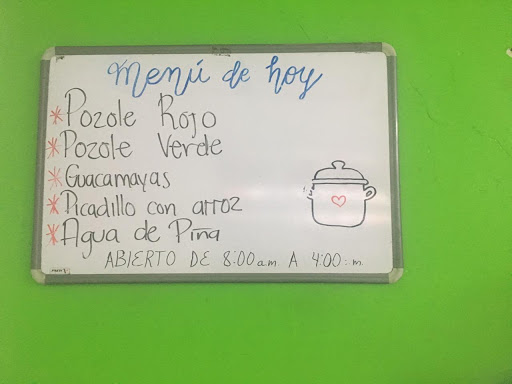 Menú de hoy
*Pozole Rojo
*Pozole Verde
*Guacamayas
*Picadillo con arroz
*Agua de Piña
ABIERTO DE 8:00 a.m. A 4:00 : m.